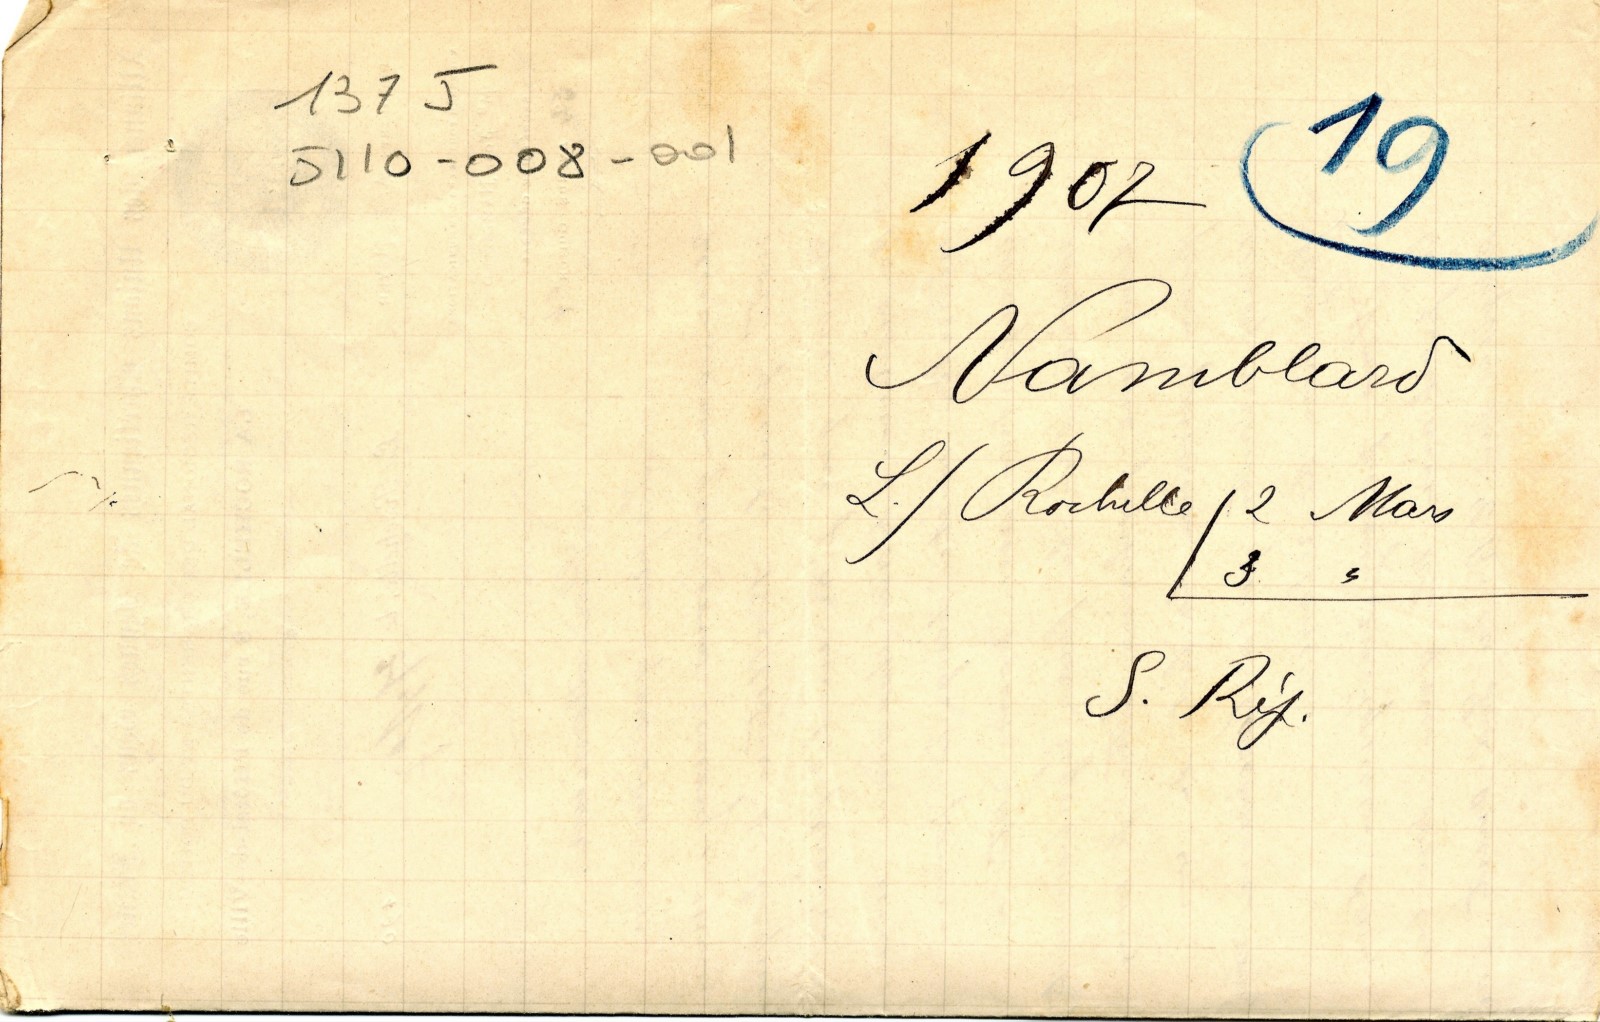 137 J
5110-008-001
1902
19
Namblard
L./ Rochelle / 2 Mars
3 "
S. Rép.